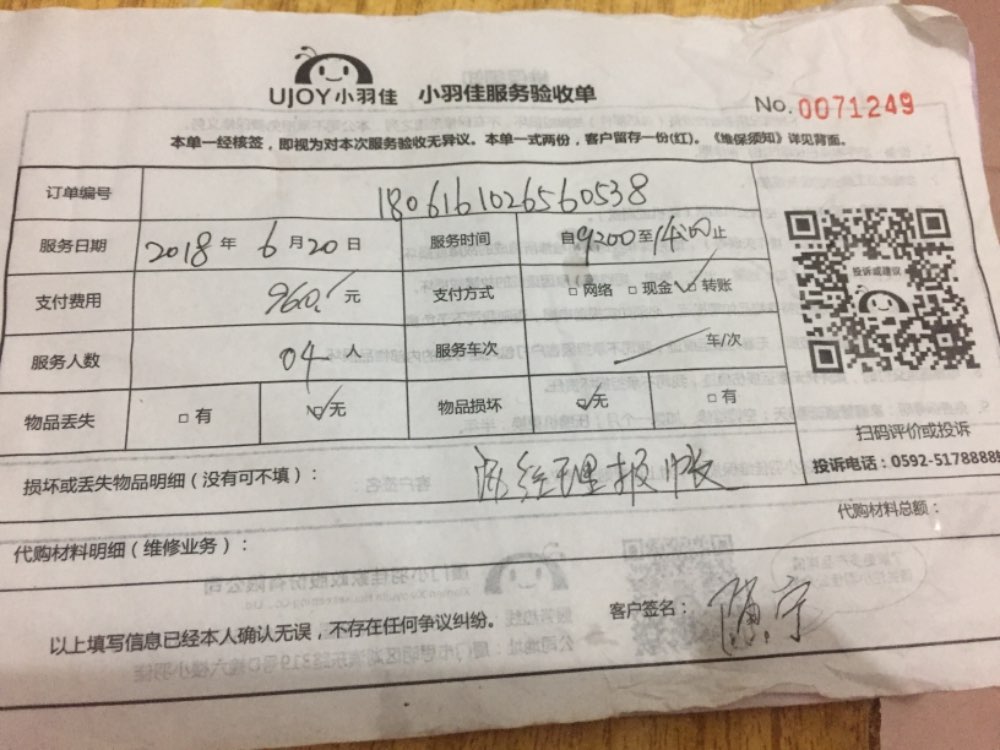 UJOY小羽佳 小羽佳服务验收单
No.0071249
本单一经核签，即视为对本次服务验收无异议。本单一式两份，客户留存一份(红)。《维保须知》详见背面。
订单编号 1806161026560538
服务日期 2018年6月20日 服务时间 自9:00至14:00止
支付费用 960元 支付方式 □网络 □现金✓□转账
服务人数 04人 服务车次 车/次
物品丢失 □有 ☑无 物品损坏 ☑无 □有
投诉或建议
扫码评价或投诉
投诉电话：0592-5178888
损坏或丢失物品明细(没有可不填)： 经理报帐
代购材料总额：
代购材料明细(维修业务)：
以上填写信息已经本人确认无误，不存在任何争议纠纷。 客户签名：